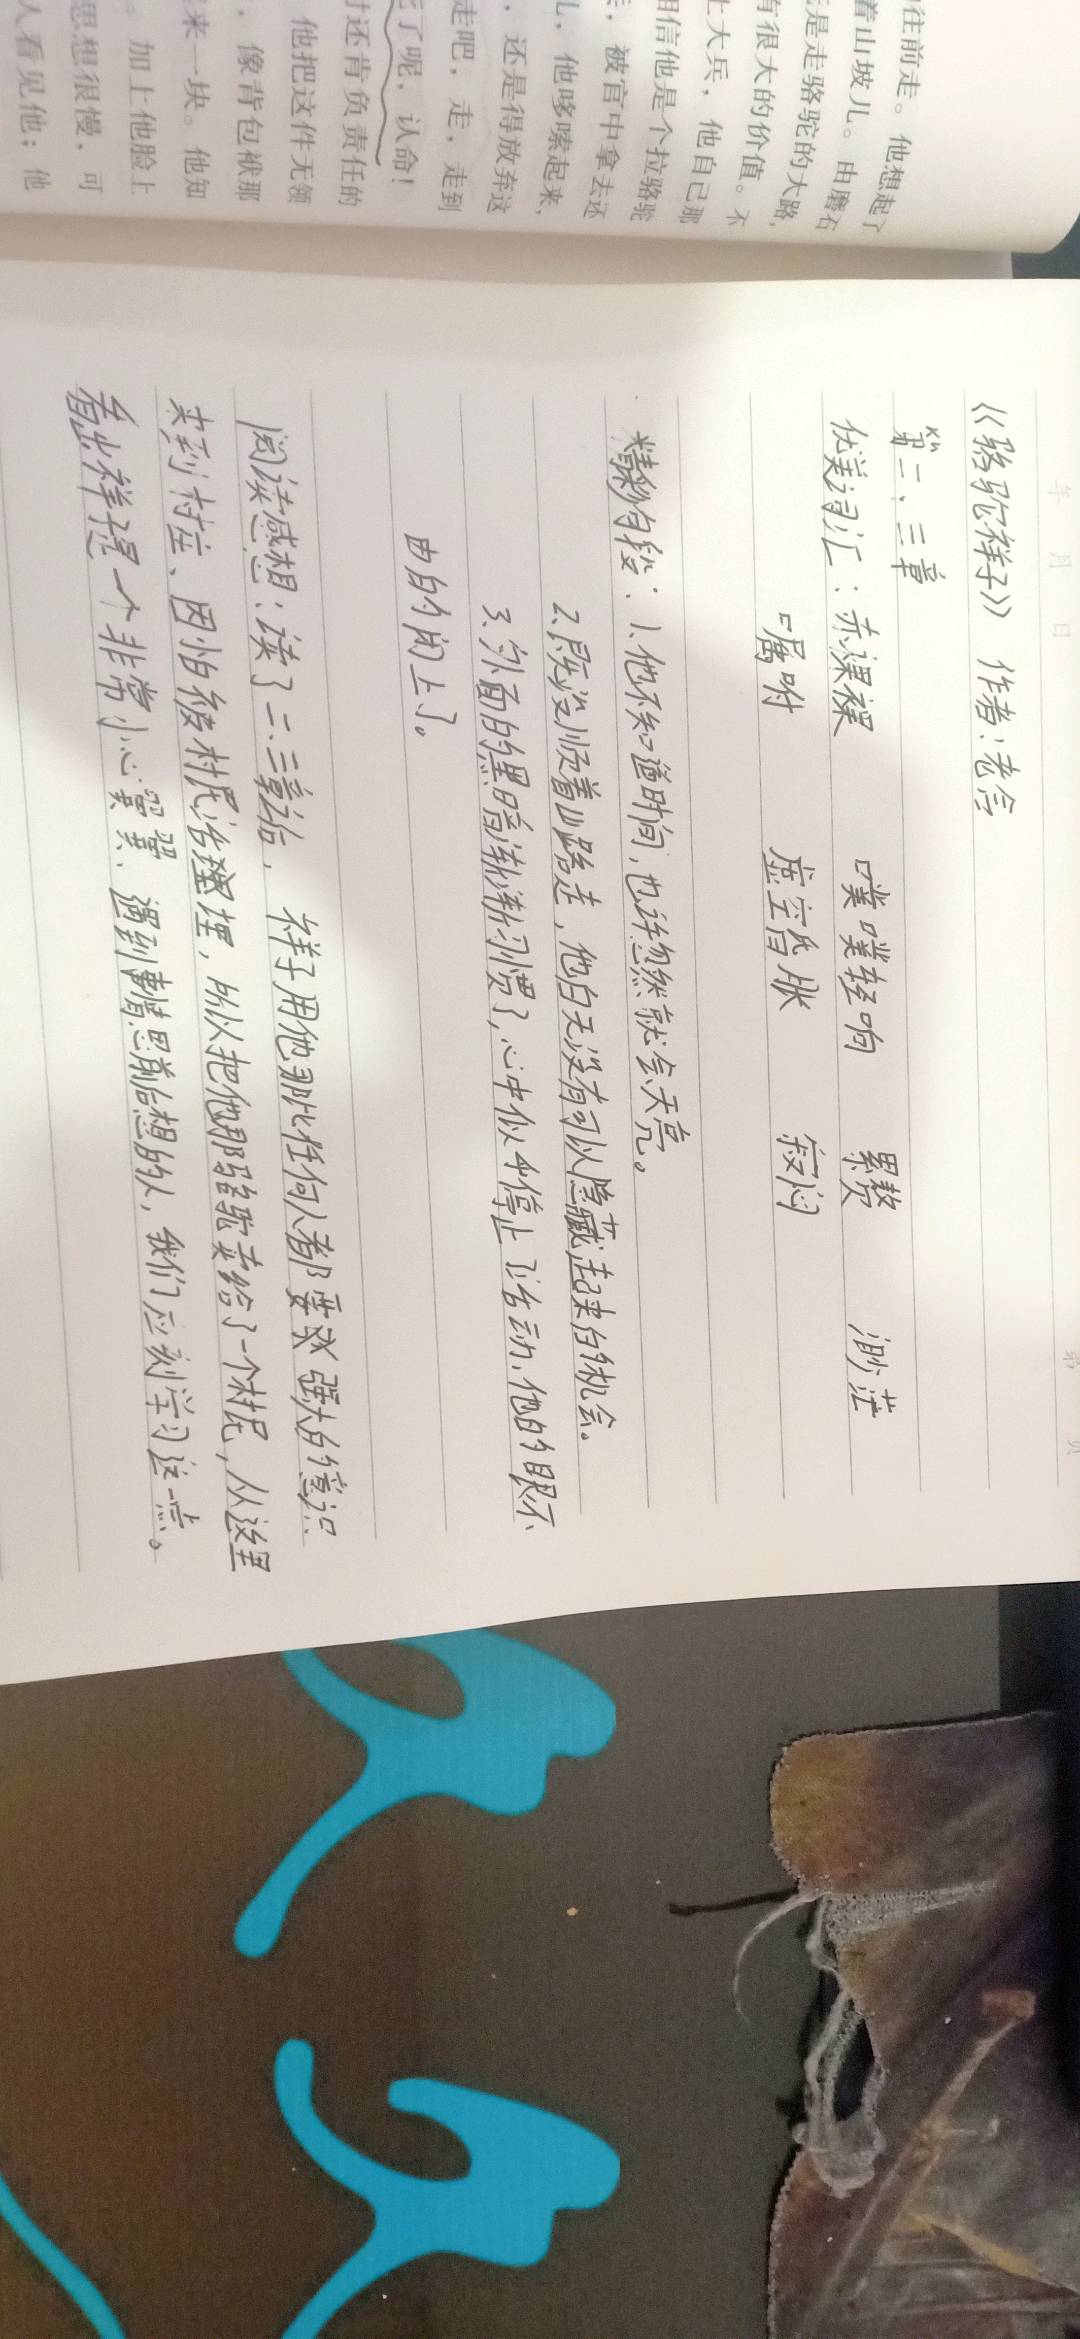 往前走。他想起了
着山坡儿。由磨石
是走骆驼的大路,
有很大的价值。不
上大兵,他自己那
相信他是个拉骆驼
,被官中拿去还
儿,他哆嗦起来,
,还是得放弃这
走吧,走,走到
了呢,认命!
时还肯负责任的
他把这件无领
,像背包袱那
来一块。他知
。加上他脸上
思想很慢,可
人看见他;他
年 月 日
第 页
《骆驼祥子》 作者:老舍
第二、三章
优美词汇:赤裸裸 噗噗轻响 累赘 渺茫
嘱咐 虚空 寂闷
精彩句段:1.他不知道时间,也许忽然就会天亮。
2.既没顺着山路走,他白天没有可以隐藏起来的机会。
3.外面的黑暗渐渐习惯了,心中似乎停止了活动,他的眼不
由的闭上了。
阅读感想:读了二、三章后,祥子用他那比任何人都要求强大的意识
来到村庄、因怕被村民活埋,所以把他那骆驼卖给了一个村民,从这里
看出祥子是一个非常小心翼翼、遇到事情思前想后的人,我们应刻学习这一点。